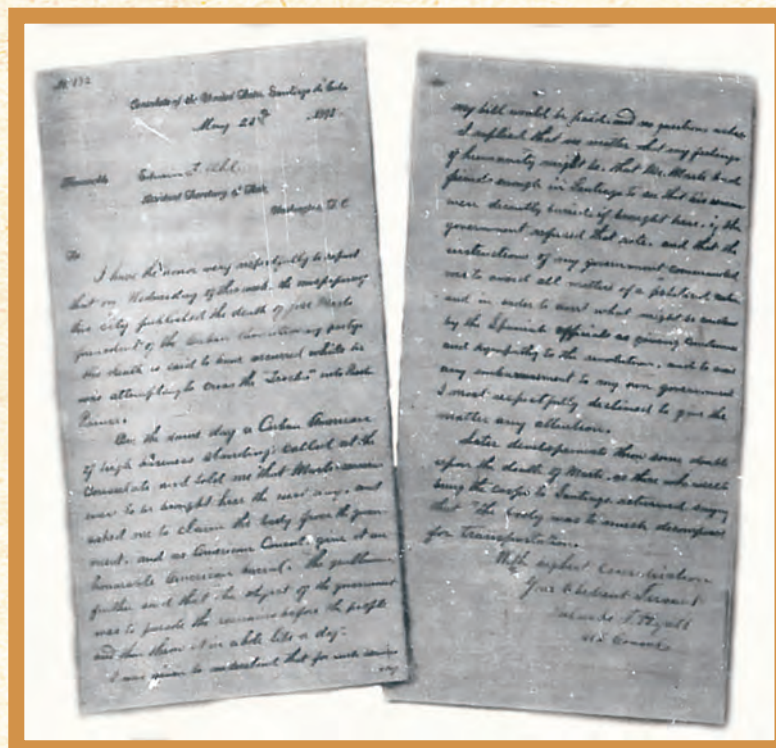 Consulate of the United States, Santiago de Cuba
May 25th, 1895.
Honorable Edwin F. Uhl
Assistant Secretary of State,
Washington, D.C.
Sir
I have the honor very respectfully to report
that on Wednesday of this week, the newspapers of
this city published the death of José Marti
president of the Cuban Revolutionary party
the death is said to have occurred while he
was attempting to cross the "Trocha" into
On the same day a Cuban American
of high business standing called at the
Consulate and told me that Marti's remains
were to be brought here the next day, and
asked me to claim the body from the govern-
ment, and as American Consul, give it an
honorable American burial. The gentleman
further said that the object of the government
was to parade the remains before the people
and then throw it in a hole like a dog.
I was given to understand that for such service
my bill would be paid and no questions asked.
I replied that no matter what my feelings
of humanity might be, that Mr. Marti had
friends enough in Santiago to see that his remains
were decently buried, if brought here, if the
government refused that rite, and that the
instructions of my government commanded
me to avoid all matters of a political nature
and in order to avoid what might be
by the Spanish officials as giving
and sympathy to the revolution, and to avoid
any embarrassment to my own government
I most respectfully declined to give the
matter any attention.
Later developments throw some doubt
upon the death of Marti, as those who went to
bring the corpse to Santiago returned saying
that "the body was to much decomposed
for transportation.
With highest consideration
Your Obedient Servant
Hyatt
U.S. Consul